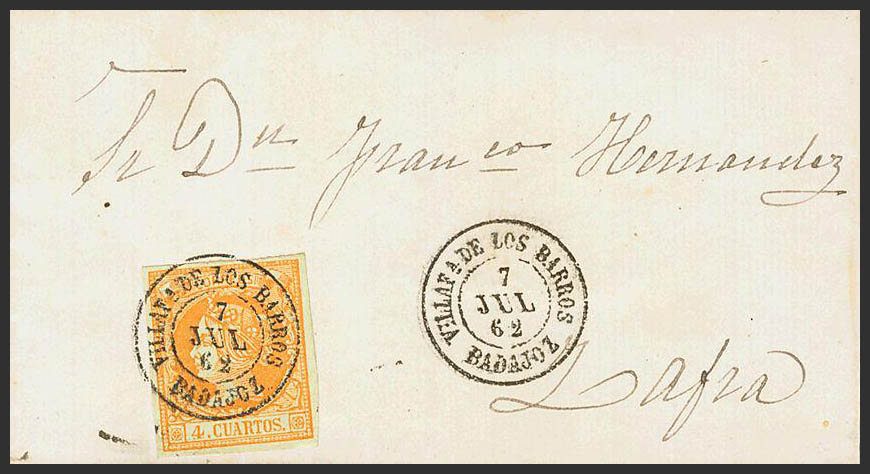 Sr Dn Franco Hernandez
VILLAFA DE LOS BARROS
7
JUL
62
BADAJOZ
4. CUARTOS.
VILLAFA DE LOS BARROS
7
JUL
62
BADAJOZ
Zafra